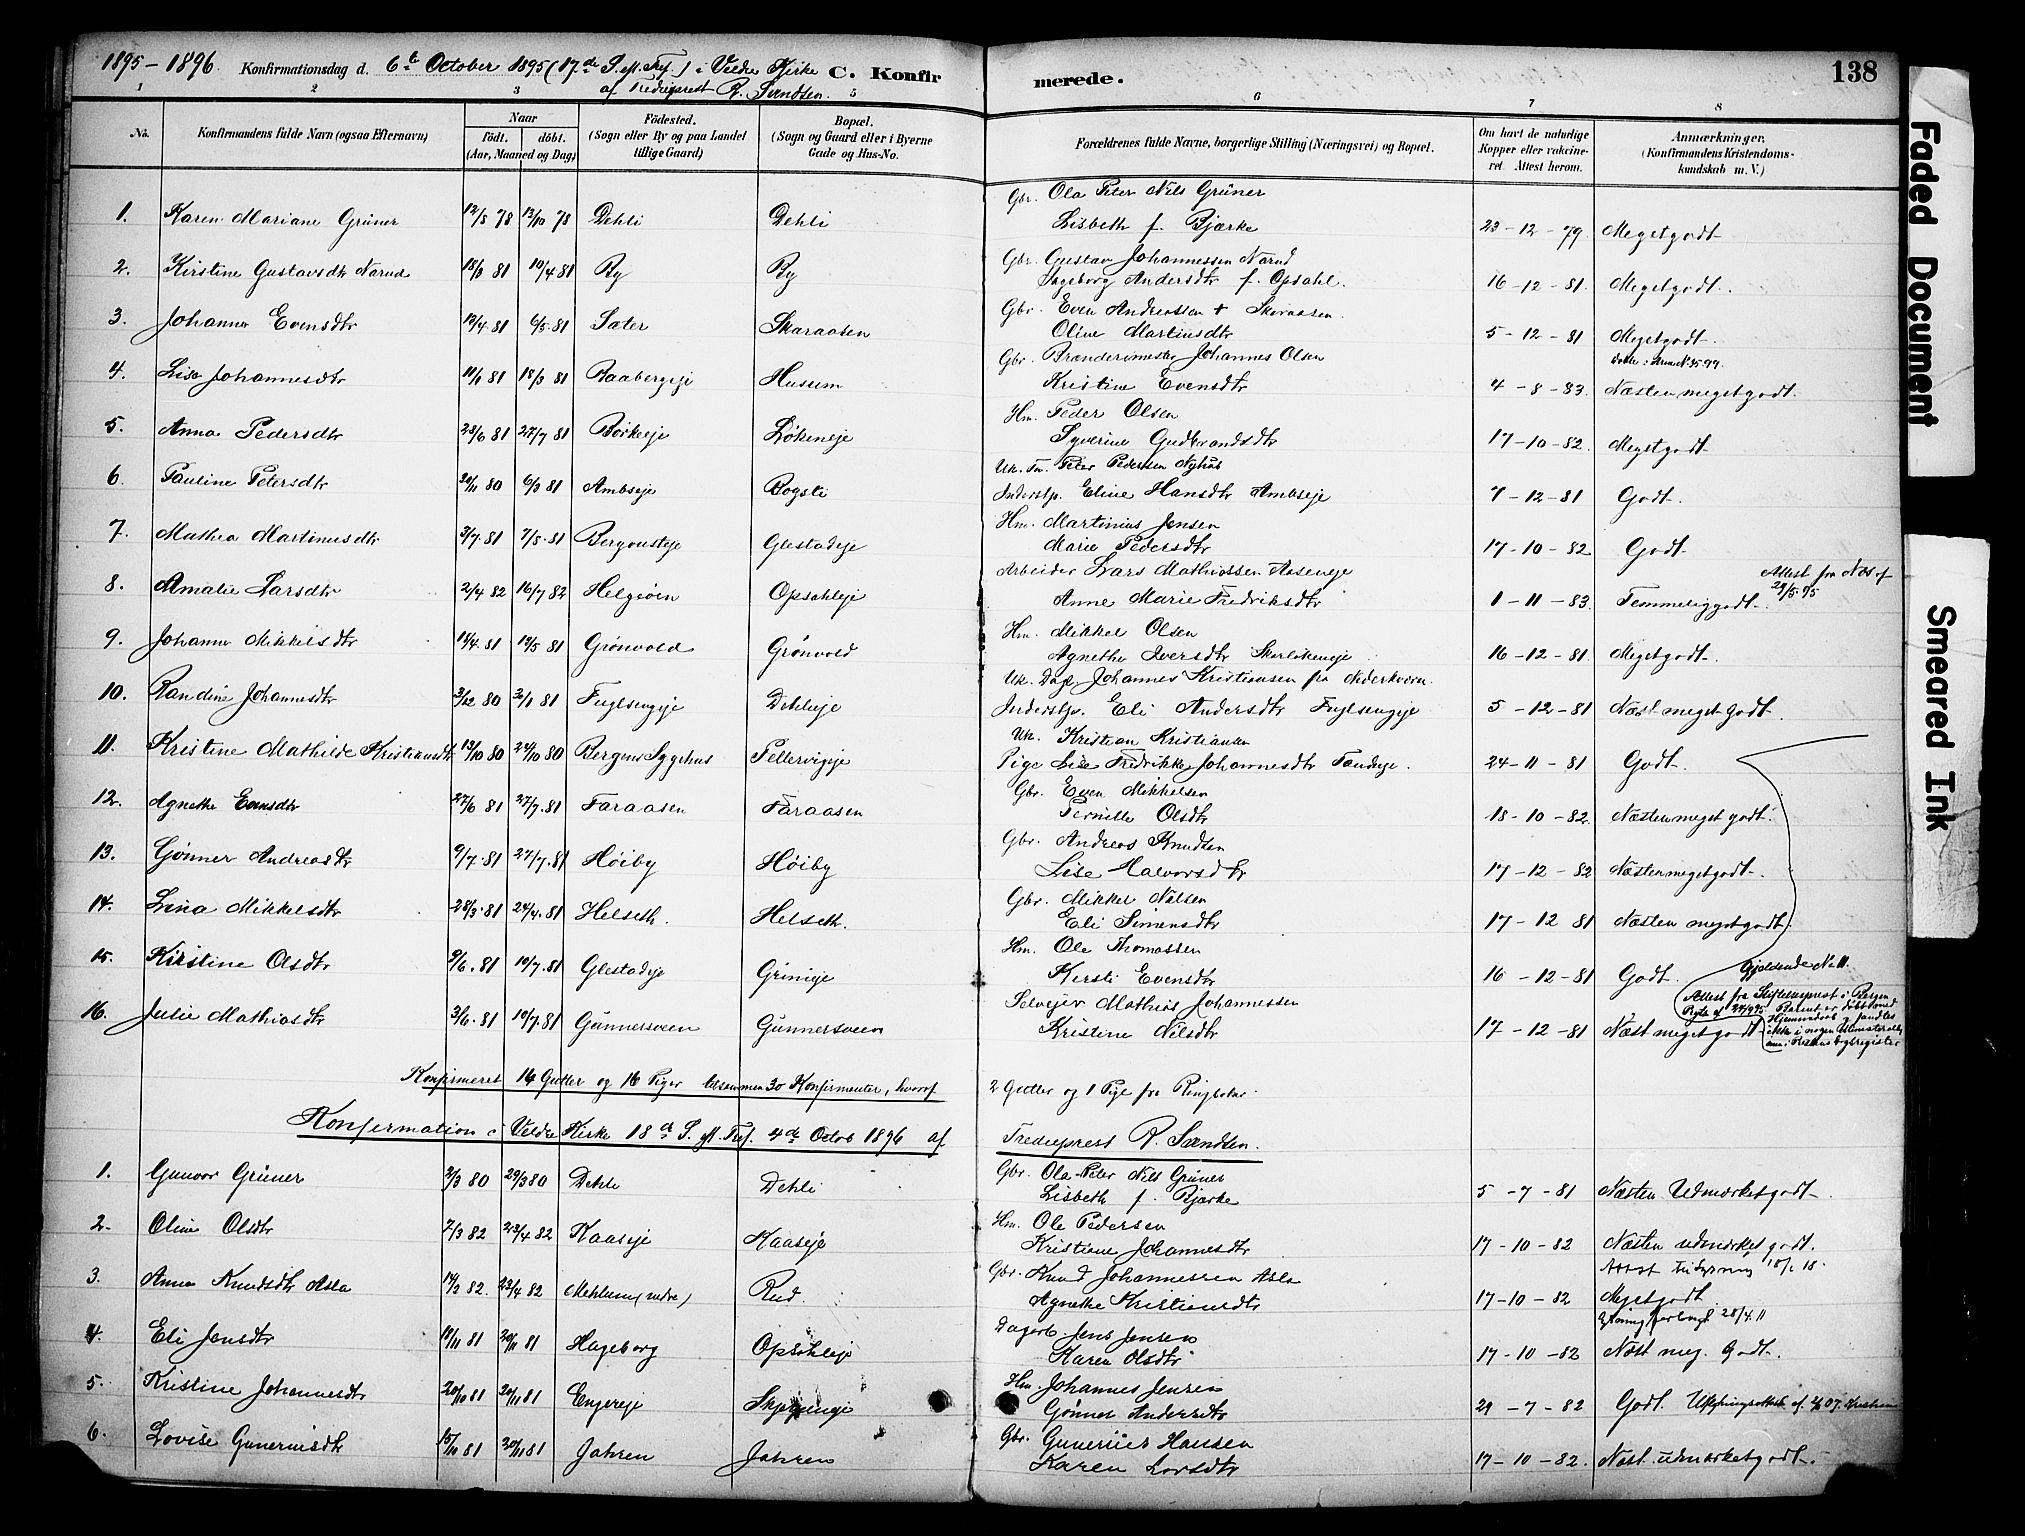 1895-1896. Konfirmationsdag d. 6te October 1895 (17de S. e. Tref.) i Veldre Kirke C. Konfirmerede. 138
af Sogneprest R. Sandsen.
1 2 3 5 6 7 8
No. Konfirmandens fulde Navn (ogsaa Efternavn) Naar født. døbt. (Aar, Maaned og Dag) Födested. (Sogn eller By og paa Landet tillige Gaard) Bopæl. (Sogn og Gaard eller i Byerne Gade og Hus-No. Forældrenes fulde Navne, borgerlige Stilling (Næringsvei) og Bopæl. Om havt de naturlige Kopper eller vaccineret. Attest herom. Anmærkninger. (Konfirmandens Kristendomskundskab m. V.)
1. Karen Mariane Grüner 12/8 78 13/10 78 Dehli Dehli Gbr. Ola Peter Nils Grüner
Lisbeth f. Bjærke 23-12-79 Megetgodt
2. Kirstine Gustavsdtr Narud 18/3 81 10/4 81 By By Gbr. Gustav Johannessen Narud
Ingeborg Andersdtr f. Opsahl. 16-12-81. Megetgodt.
3. Johanne Evensdtr 12/4 81 6/5 81 Sater Skaraasen Gbr. Even Andreassen + Skaraasen
Oline Martinusdtr 5-12-81 Megetgodt.
4. Lise Johannesdtr 10/1 81 18/3 81 Baabergeje Husum Gbr. Brænderimester Johannes Olsen
Kristine Evensdtr 4-8-83. Næsten megetgodt.
5. Anna Pedersdtr 23/6 81 27/7 81 Børkeeje Løkeneje Hm. Peder Olsen
Syverine Gudbrandsdtr 17-10-82. Megetgodt
6. Pauline Petersdtr 30/11 80 6/3 81 Ambseje Bogsti Uk. Peter Pedersen Nyhus
Inderstp. Eline Hansdtr Ambseje 7-12-81 Godt.
7. Mathea Martinusdtr 3/7 81 7/8 81 Bergousteje Glestadeje Hm. Martinius Jensen
Marie Pedersdtr 17-10-82 Godt
8. Amalie Larsdtr 2/4 82 16/7 82 Helgøen Opsahleje Arbeider Lars Mathiassen Aaseneje Attest fra Næs af 29/5 95
Anne Marie Fredriksdtr 1-11-83. Temmeliggodt.
9. Johanne Mikkelsdtr 14/4 81 19/5 81 Grønvold Grønvold Hm. Mikkel Olsen
Agnethe Iversdtr 16-12-81. Megetgodt.
10. Randine Johannesdtr 3/12 80 2/1 81 Fuglsengeje Dehlieje Uk. Dagl. Johannes Kristiansen fra Nederkvern
Inderstp. Eli Andersdtr Fuglsengeje 5-12-81 Næst meget godt.
11. Kristine Mathilde Kristiansdtr 13/10 80 24/10 80 Bergens Sygehus Pellervigeje Uk. Kristian Kristiansen
Pige Lise Fredrikke Johannesdtr Tandeje. 24-11-81 Godt.
12. Agnethe Evensdtr 27/6 81 27/7 81 Faraasen Faraasen Gbr. Even Mikkelsen
Pernille Olsdtr 18-10-82. Næsten meget godt.
13. Gønner Andreasdtr 9/7 81 27/7 81 Høiby Høiby Gbr. Andreas Knudsen
Lise Halvorsdtr 17-12-82 Næsten megetgodt.
14. Lina Mikkelsdtr 28/3 81 24/4 81 Helseth. Helseth. Gbr. Mikkel Nilsen
Eli Simensdtr 17-12 81 Næsten megetgodt
15. Kirstine Olsdtr 9/6 81 10/7 81 Glestadeje Grinieje Hm. Ole Thomassen
Kersti Evensdtr 16-12-81 Godt. Gjældende No 11.
16. Julie Mathiasdtr 3/6 81 10/7 81 Gunnersveen Gunnersveen Selvejer Mathias Johannessen
Kristine Nilsdtr 17-12-81 Næst meget godt
Attest fra Stiftelsesprest i Bergen
Barnet er døbt ved
Hjemmedaab og fandtes
ikke i nogen
Konfirmeret 14 Gutter og 16 Piger tilsammen 30 Konfirmanter, hvoraf 2 Gutter og 1 Pige fra Ringsaker.
Konfirmation i Veldre Kirke 18de S. e. Tref. 4de Octob 1896 af Sogneprest R. Sandsen.
1. Gunvor Grüner 2/3 80 29/3 80 Dehli Dehli Gbr. Ola Peter Nils Grüner
Lisbeth f. Bjærke 5-7-81 Næsten Udmærketgodt.
2. Oline Olsdtr 7/3 82 23/4 82 Kaaseje Kaaseje Hm. Ole Pedersen
Kristiane Johannesdtr 17-10-82 Næsten udmærket godt.
3. Anna Knudsdtr Asla 14/3 82. 23/4 82 Mehlum (nedre) Rud. Gbr. Knud Johannessen Asla
Agnethe Kristiansdtr 17-10-82 Megetgodt
4. Eli Jensdtr 10/11 81 20/11 81 Hageborg Opsahleje Dagarb. Jens Jensen
Karen Olsdtr 17-10-82 Næst meg. Godt.
5. Kristine Johannesdtr 20/10 81 20/11 81 Engereje Hm. Johannes Jensen
Gønner Andersdtr 29-7-82 Godt.
6. Lovise Gunerusdtr 15/10 81 20/11 81 Jahren Jahren Gbr. Gunerius Hansen
Karen Larsdtr 17-10-82. Næst. udmærketgodt.
Faded Document
Smeared Ink